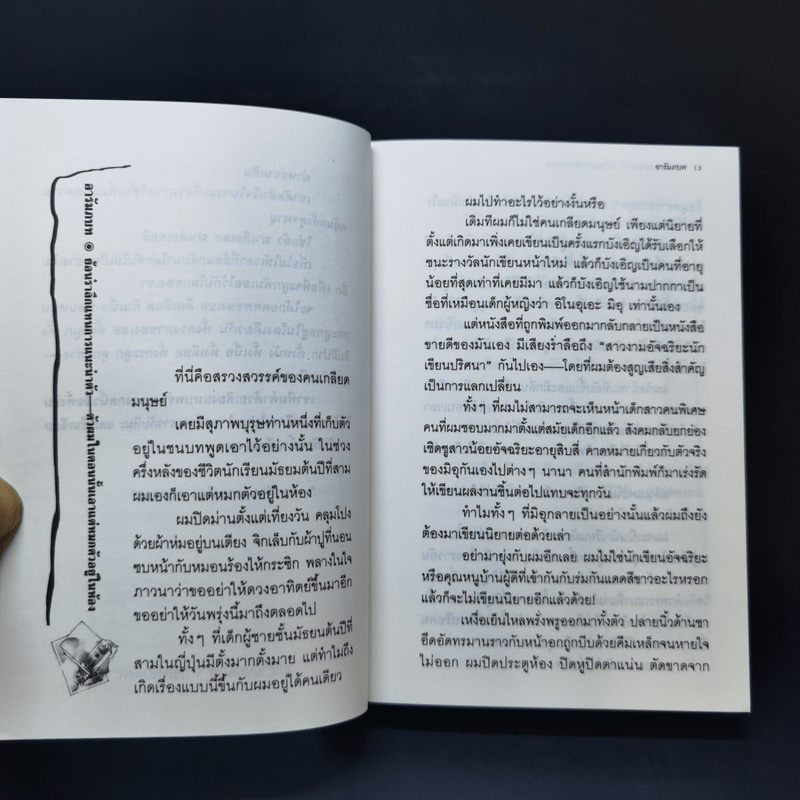 อารัมภบท ๏ ย้อนรำลึกแทนการแนะนำตัว—ตัวผมในตอนนั้นเอาแต่หมกตัวอยู่ในห้อง
ที่นี่คือสรวงสวรรค์ของคนเกลียด
มนุษย์
เคยมีสุภาพบุรุษท่านหนึ่งที่เก็บตัว
อยู่ในชนบทพูดเอาไว้อย่างนั้น ในช่วง
ครึ่งหลังของชีวิตนักเรียนมัธยมต้นปีที่สาม
ผมเองก็เอาแต่หมกตัวอยู่ในห้อง
ผมปิดม่านตั้งแต่เที่ยงวัน คลุมโปง
ด้วยผ้าห่มอยู่บนเตียง จิกเล็บกับผ้าปูที่นอน
ซบหน้ากับหมอนร้องไห้กระซิก พลางในใจ
ภาวนาว่าขออย่าให้ดวงอาทิตย์ขึ้นมาอีก
ขออย่าให้วันพรุ่งนี้มาถึงตลอดไป
ทั้งๆ ที่เด็กผู้ชายชั้นมัธยมต้นปีที่
สามในญี่ปุ่นมีตั้งมากตั้งมาย แต่ทำไมถึง
เกิดเรื่องแบบนี้ขึ้นกับผมอยู่ได้คนเดียว
อารัมภบท 13
ผมไปทำอะไรไว้อย่างงั้นหรือ
เดิมทีผมก็ไม่ใช่คนเกลียดมนุษย์ เพียงแต่นิยายที่
ตั้งแต่เกิดมาเพิ่งเคยเขียนเป็นครั้งแรกบังเอิญได้รับเลือกให้
ชนะรางวัลนักเขียนหน้าใหม่ แล้วก็บังเอิญเป็นคนที่อายุ
น้อยที่สุดเท่าที่เคยมีมา แล้วก็บังเอิญใช้นามปากกาเป็น
ชื่อที่เหมือนเด็กผู้หญิงว่า อิโนอุเอะ มิอุ เท่านั้นเอง
แต่หนังสือที่ถูกพิมพ์ออกมากลับกลายเป็นหนังสือ
ขายดีของมันเอง มีเสียงร่ำลือถึง “สาวงามอัจฉริยะนัก
เขียนปริศนา” กันไปเอง—โดยที่ผมต้องสูญเสียสิ่งสำคัญ
เป็นการแลกเปลี่ยน
ทั้งๆ ที่ผมไม่สามารถจะเห็นหน้าเด็กสาวคนพิเศษ
คนที่ผมชอบมาตั้งแต่สมัยเด็กอีกแล้ว สังคมกลับยกย่อง
เชิดชูสาวน้อยอัจฉริยะอายุสิบสี่ คาดหมายเกี่ยวกับตัวจริง
ของมิอุกันเองไปต่างๆ นานา คนที่สำนักพิมพ์ก็มาเร่งรัด
ให้เขียนผลงานชิ้นต่อไปแทบจะทุกวัน
ทำไมทั้งๆ ที่มิอุกลายเป็นอย่างนั้นแล้วผมถึงยัง
ต้องมาเขียนนิยายต่อด้วยเล่า
อย่ามายุ่งกับผมอีกเลย ผมไม่ใช่นักเขียนอัจฉริยะ
หรือคุณหนูบ้านผู้ดีที่เข้ากันกับร่มกันแดดสีขาวอะไรหรอก
แล้วก็จะไม่เขียนนิยายอีกแล้วด้วย!
เหงื่อเย็นไหลพรั่งพรูออกมาทั้งตัว ปลายนิ้วด้านชา
อึดอัดทรมานราวกับหน้าอกถูกบีบด้วยคีมเหล็กจนหายใจ
ไม่ออก ผมปิดประตูห้อง ปิดหูปิดตาแน่น ตัดขาดจาก